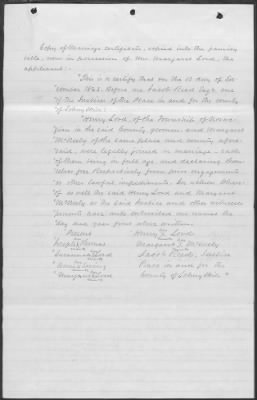 Copy of Marriage certificate, copied into the family
bible, now in possession of Mrs. Margaret Lord, the
applicant:-
"This is to certify that on the 13 day of
1862. Before me Jacob Reed Esq're. one
of the Justices of the Peace in and for the county
of Schuylkill:
Henry Lord, of the Township of
in the said County yeoman, and Margaret
McNeely of the same place and county afore-
said, were legally joined in marriage - each
of them being of full age and declaring them-
selves free respectively from prior engagements
or other lawful impediments. In witness where-
of as well the said Henry Lord and Margaret
McNeely as the said Justice and other witnesses
present have unto subscribed our names the
day and year first above written.
"Present Henry X Lord
Joseph Thomas Margaret X McNeely
Lord Jacob Reed, Justice
Peace in and for the
"Margaret Lord County of Schuylkill"